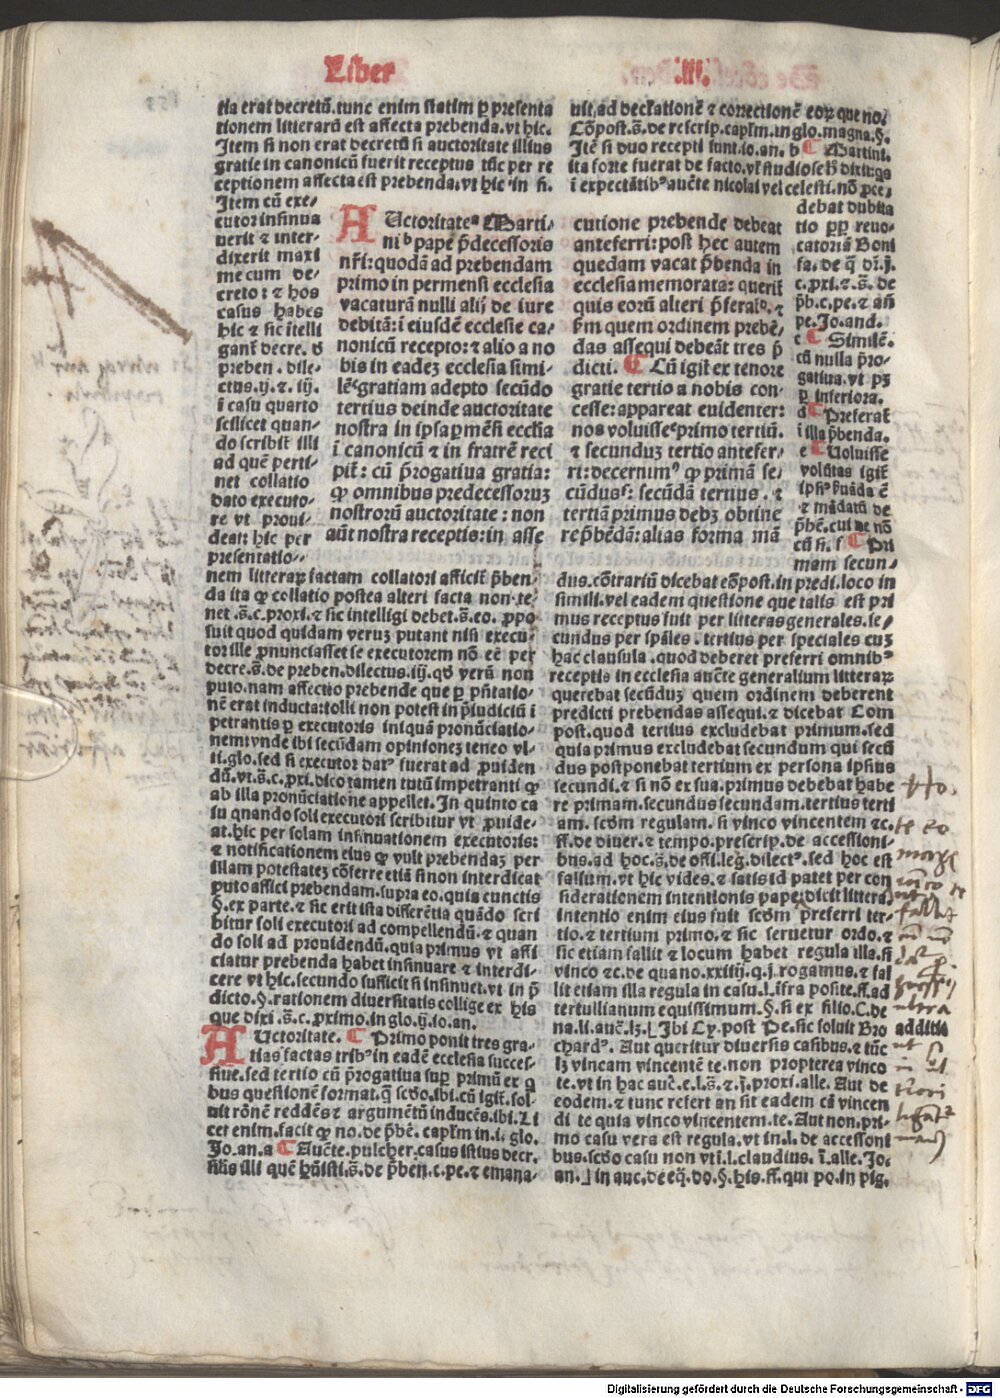 Liber .III.
tia erat decretū. tunc enim statim ꝑ presenta
tionem litterarū est affecta prebenda. vt hic.
Item si non erat decretū si auctoritate illius
gratie in canonicū fuerit receptus tūc per re
ceptionem affecta est prebenda. vt hic in fi.
Item cū exe⸗
cutor insinua
uerit ⁊ inter⸗
dixerit maxi
me cum de⸗
creto: ⁊ hos
casus habes
hic ⁊ sic ītelli
ganť decre. ð
preben. dile⸗
ctus .ij. ⁊ .iij.
ī casu quarto
scilicet quan⸗
do scribiť illi
ad quē perti⸗
net collatio
dato executo⸗
re vt proui⸗
deat: hic per
presentatio⸗
nem litteraꝝ factam collatori afficiť p̄ben⸗
da ita ꝙ collatio postea alteri facta non te⸗
net .s̄. c. proxi. ⁊ sic intelligi debet .s̄. eo.
suit quod quidam veruȝ putant nisi execu⸗
tor ille ꝓnunciasset se executorem nō eē per
decre. s̄. de preben. dilectus .iij. qð verū non
puto. nam affectio prebende que ꝑ p̄ntatio⸗
nē erat inducta: tolli non potest in p̄iudiciū ī
petrantis ꝑ executoris iniquā pronūciatio⸗
nem: vnde ibi secūdam opinioneȝ teneo vl⸗
ti. glo. sed si executor datꝰ fuerat ad ꝓuiden
dū. vt .s̄. c. ꝓxi. dico tamen tutū impetranti ꝙ
ab illa pronūciatione appellet. In quinto ca
su quando soli executori scribitur vt ꝓuide⸗
at. hic per solam insinuationem executoris:
⁊ notificationem eius ꝙ vult prebendaȝ per
illam potestateȝ cōferre etiā si non interdicat
puto affici prebendam. supra eo. quia cunctis
§. ex parte. ⁊ sic erit ista differētia quādo scri
bitur soli executori ad compellendū. ⁊ quan
do soli ad prouidendū. quia primus vt affi
ciatur prebenda habet insinuare ⁊ interdi⸗
cere vt hic. secundo sufficit si insinuet. vt in p̄
dicto .§. rationem diuersitatis collige ex his
que dixi .s̄. c. ꝓximo. in glo. ij. io. an.
AUctoritate. ¶ Primo ponit tres gra⸗
tias factas tribꝰ in eadē ecclesia succes⸗
siue. sed tertio cū p̄rogatiua suꝑ primū ex q
bus questionē format. q̄ scðo. ibi. cū igiť. sol⸗
uit rōnē reddēs ⁊ argumētū inducēs. ibi. Li
cet enim. facit ꝙ no. de p̄bē. cap̄lm in .i. glo.
Jo. an. a ¶ Aucte. pulcher. casus istius decr.
n̄lis illi quē hūisti .s̄. de p̄ben. c. pe. ⁊ emana⸗
AUctoritateᵃ Marti⸗
niᵇ pape p̄decessoris
nr̄i: quodā ad prebendam
primo in permensi ecclesia
vacaturā nulli alij de iure
debitā: ī eiusdē ecclesie ca⸗
nonicū recepto: ⁊ alio a no
bis in eadeȝ ecclesia simi⸗
lēᶜ gratiam adepto secūdo
tertius deinde auctoritate
nostra in ipsa ꝑmēsi eccl̄ia
ī canonicū ⁊ in fratrē reci
piť: cū p̄rogatiua gratia:
ꝙ omnibus predecessoruȝ
nostrorū auctoritate: non
aūt nostra receptis: in asse
cutione prebende debeat
anteferri: post hec autem
quedam vacat p̄benda in
ecclesia memorata: queriť
quis eorū alteri p̄feratᵈ. ⁊
p̄m quem ordinem prebē⸗
das assequi debeāt tres p̄
dicti. ¶ Cū igiť ex tenore
gratie tertio a nobis con⸗
cesse: appareat euidenter:
nos voluisseᵉ primo tertiū.
⁊ secunduȝ tertio antefer⸗
ri: decernimꝰ ꝙ primā se⸗
cūdusᶠ: secūdā tertius. ⁊
tertiā primus debȝ obtine
re p̄bēdā: alias forma mā
uit, ad declr̄ationē ⁊ correctionē eoꝝ que no.
Cōpost. s̄. de rescrip. cap̄lm. in glo. magna. §.
Itē si duo recepti sunt. io. an. b ¶ Martini.
ita forte fuerat de facto. vel studiose
ī expectātibꝰ aucte nicolai vel celesti. nō ꝓce⸗
debat dubita
tio ꝓꝑ reuo⸗
catoriā Boni
fa. de q̄ dr̄. j.
c. ꝓxi. ⁊ .s̄. de
p̄b. c. pe. ⁊ añ
pe. Jo. and.
c ¶ Similē.
cū nulla p̄ro⸗
gatiua. vt pȝ
ꝑ inferiora.
d ¶ Preferať
ī illa p̄benda.
e ¶ Uoluisse
volūtas igiť
ipsiꝰ ẜuāda ē
⁊ mādatū de
p̄bē. cui de nō
cū fi. f ¶ Pri
mam secun⸗
dus. cōtrariū dicebat cōpost. in predi. loco in
simili. vel eadem questione que talis est pri
mus receptus fuit per litteras generales. se⸗
cundus per sp̄ales. tertius per speciales cuȝ
hac clausula. quod deberet preferri omnibꝰ
receptis in ecclesia aucte generalium litteraꝝ
querebat secūduȝ quem ordinem deberent
predicti prebendas assequi. ⁊ dicebat Com
post. quod tertius excludebat primum. sed
quia primus excludebat secundum qui secū
dus postponebat tertium ex persona ipsius
secundi. ⁊ si nō ex sua. primus debebat habe
re primam. secundus secundam. tertius terti
am. scðm regulam. si vinco vincentem ⁊c.
ff. de diuer. ⁊ tempo. prescrip. de accessioni⸗
bus. ad hoc .s̄. de offi. leg. dilectꝰ. sed hoc est
falsum. vt hic vides. ⁊ satis id patet per con
siderationem intentionis pape. dicit littera.
intentio enim eius fuit scðm preferri ter⸗
tio. ⁊ tertium primo. ⁊ sic seruetur ordo. ⁊
sic etiam fallit ⁊ locum habet regula illa. si
vinco ⁊c. de qua no. xxiiij. q. j. rogamus. ⁊ fal
lit etiam illa regula in casu .l. īfra posite. ff. ad
tertullianum equissimum. §. si ex filio. C. de
na. li. auc̄. lȝ. [Ibi Cy. post Pe. sic soluit Bro additio
chardꝰ. Aut queritur diuersis casibus. ⁊ tūc
lȝ vincam vincentē te. non propterea vinco
te. vt in hac auc̄. e. l. s̄. ⁊ .j. proxi. alle. Aut de
eodem. ⁊ tunc refert an sit eadem cā vincen
di te quia vinco vincentem te. Aut non. pri⸗
mo casu vera est regula. vt in .l. de accessioni
bus. scðo casu non vti .l. claudius. ī. alle. Jo.
an.] in auc. de eq̄. do. §. his. ff. qui po. in pig.
Digitalisierung gefördert durch die Deutsche Forschungsgemeinschaft - DFG